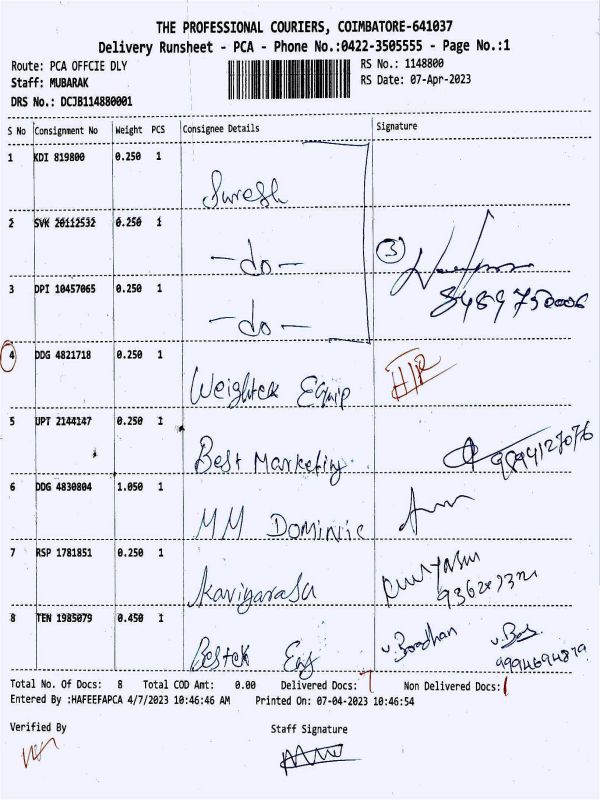 THE PROFESSIONAL COURIERS, COIMBATORE-641037
Delivery Runsheet - PCA - Phone No.:0422-3505555 - Page No.:1
Route: PCA OFFCIE DLY
RS No.: 1148800
Staff: MUBARAK
RS Date: 07-Apr-2023
DRS No.: DCJB114880001
S No Consignment No Weight PCS Consignee Details Signature
1 KDI 819800 0.250 1
Suresh
2 SVK 20112532 0.250 1
-do-
3
3 DPI 10457065 0.250 1
-do-
4 DDG 4821718 0.250 1
Weightek Equip
5 UPT 2144147 0.250 1
Best Marketing
9894127076
6 DDG 4830804 1.050 1
MM Dominic
7 RSP 1781851 0.250 1
Kaviyarasu
8 TEN 1985079 0.450 1
v.Boodhan
Bestek Eng
Total No. Of Docs: 8 Total COD Amt: 0.00 Delivered Docs: 7 Non Delivered Docs: 1
Entered By :HAFEEFAPCA 4/7/2023 10:46:46 AM Printed On: 07-04-2023 10:46:54
Verified By Staff Signature